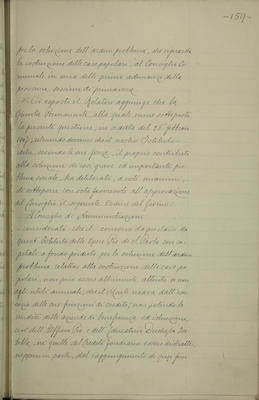 -159-
per la soluzione dell'arduo problema, che riguarda
la costruzione delle case popolari, al Consiglio Co-
munale in una delle prime adunanze della
prossima sessione di primavera.
Ciò esposto il Relatore aggiunge che la
Giunta Permanente, alla quale venne sottoposta
la presente questione, in seduta del 25 febbraio
1907, ritenendo doveroso che il nostro Istituto
rechi, secondo le sue forze, il proprio contributo
alla soluzione di così grave ed importante pro-
blema sociale, ha deliberato, a voti unanimi,
di sottoporre con voto favorevole all'approvazione
del Consiglio il seguente Ordine del giorno:
Il Consiglio di Amministrazione
considerato che il concorso da prestarsi da
questo Istituto delle Opere Pie di S. Paolo con ca-
pitale a fondo perduto per la soluzione dell'arduo
problema relativo alla costruzione delle case po-
polari, non può essere altrimenti attinto se non
agli utili annuali, che il Monte ricava dall'eser-
cizio delle sue funzioni di credito, non potendo le
rendite delle aziende di beneficenza ed istruzione,
cioè dell'Ufficio Pio e dell'Educatorio Duchessa Isa-
bella, nè quelle del Credito fondiario essere distratte
neppure in parte, dal raggiungimento de' suoi fini